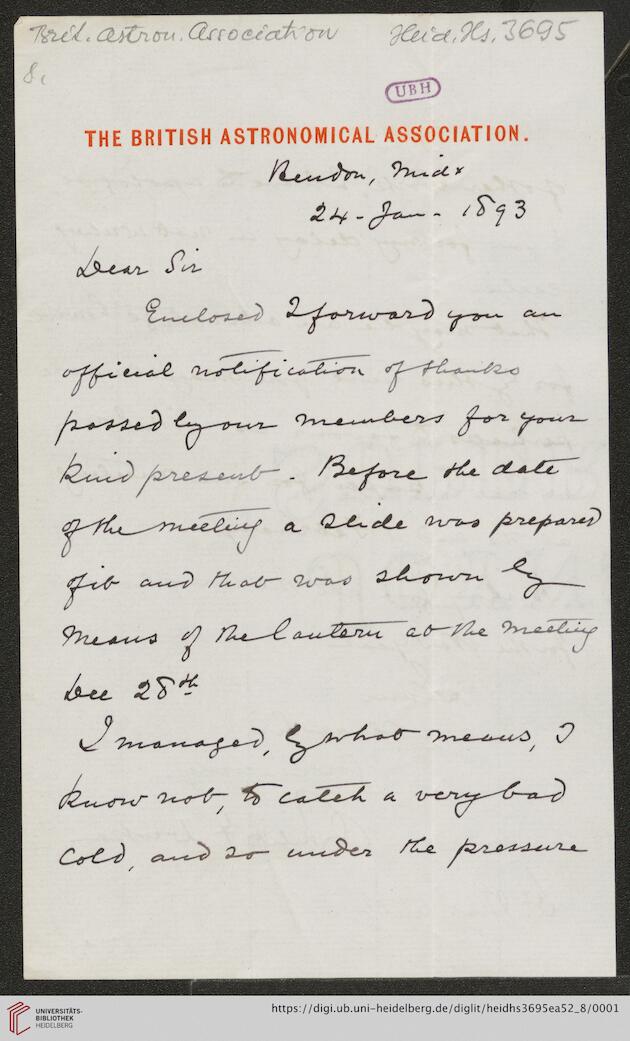 Brit. Astron. Association Heid. Hs. 3695
8.
UBH
THE BRITISH ASTRONOMICAL ASSOCIATION.
Hendon, Midx
24 - Jan - 1893
Dear Sir
Enclosed I forward you an
official notification of thanks
passed by our members for your
kind present. Before the date
of the meeting a slide was prepared
of it and that was shown by
means of the lantern at the meeting
Dec 28th
I managed, by what means, I
know not, to catch a very bad
cold, and so under the pressure
UNIVERSITÄTS-
BIBLIOTHEK
HEIDELBERG
https://digi.ub.uni-heidelberg.de/diglit/heidhs3695ea52_8/0001